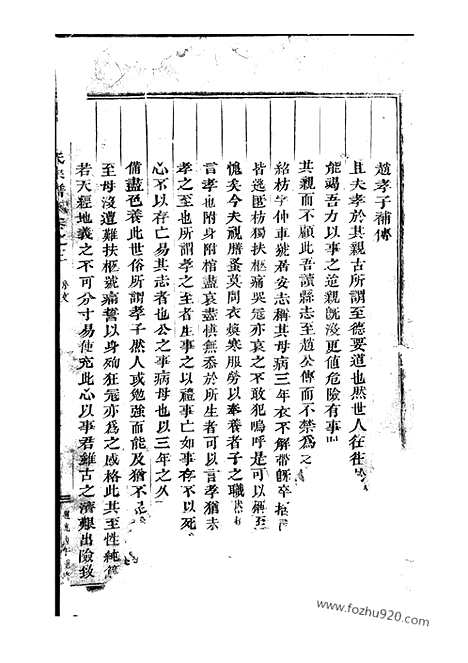 趙孝子補傳
且夫孝於其親古所謂至德要道也然世人往往
能竭吾力以事之迨親旣沒更値危險有事
其親而不顧此吾讀縣志至趙公傳而不禁爲之
紹枋字仲車號居安志稱其母病三年衣不解帶旣卒
皆逃匿枋獨扶柩痛哭寇亦哀之不敢犯嗚呼是可以
愧矣今夫視膳問衣燠寒服勞以奉養者子之職
言孝也附身附棺盡哀盡愼無忝於所生者可以言孝猶未
孝之至也所謂孝之至者生事之以禮事亡如事存不以死
心不以存亡易其志者也公之事病母也以三年之久
備盡色養此世俗所謂孝子然人或勉強而能及猶不足
至母沒遭難扶柩號痛誓以身殉狂寇亦爲之感格此其至性純
若天經地義之不可分寸易使充此心以事君雖古之濟艱出險致
氏宗譜
序文
www.fozhu920.com